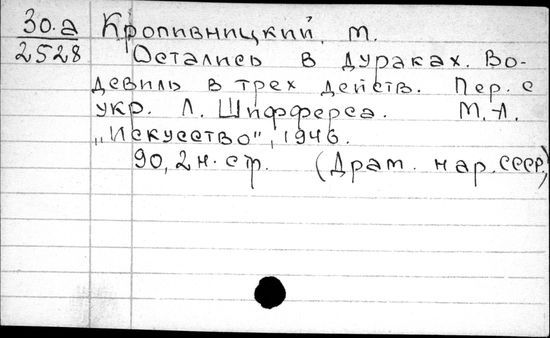 30.а Кропивницкий, М.
2528 Остались в дураках. Во-
девиль в трех действ. Пер. с
укр. Л. Шифферса. М.-Л.
„Искусство", 1946.
90, 2 н. стр. (Драт. нар. СССР)